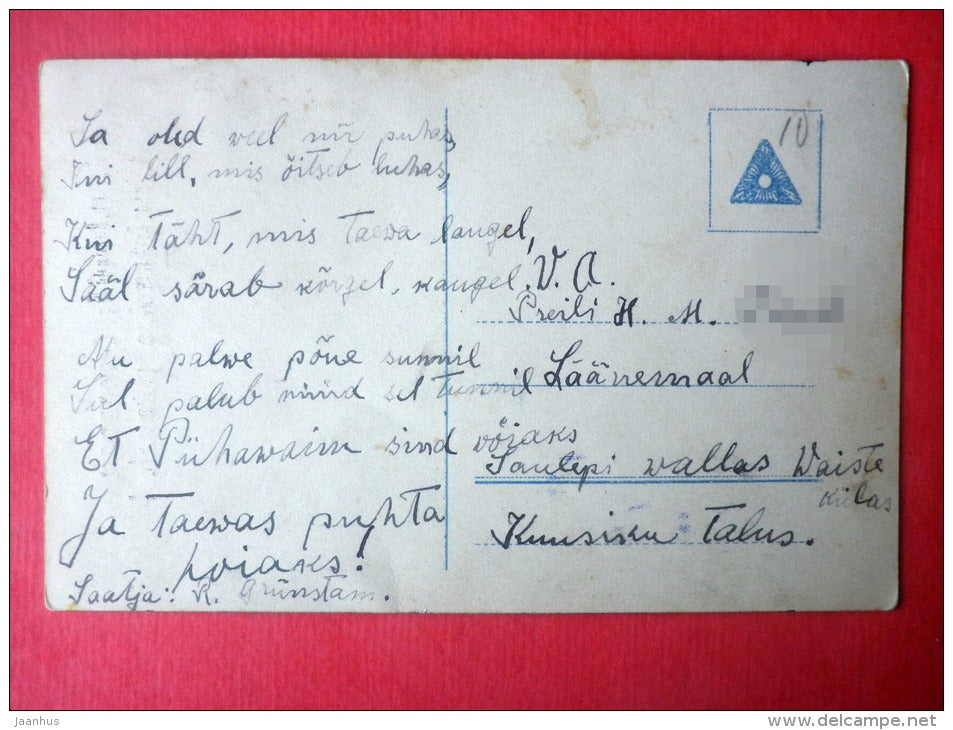 Sa oled weel nii puhas,
Kui lill, mis õitseb luhas,
Kui täht, mis taewa laugel,
Sääl särab kõrgel, kaugel.
Mu palwe põue sunnil
Sul palub nüüd sel tunnil
Et Pühawaim sind wõiaks
Ja taewas puhta
hoiaks!
Saatja: R. Grünstam.
10
V. A.
Preili H. M.
Läänemaal
Saulepi wallas Waiste
külas
Kuusiku talus.
Jaanhus
www.delcampe.net